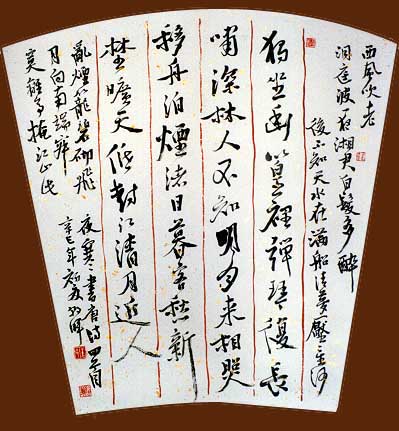 西風吹老
洞庭波一夜湘君白髮多醉
後不知天水在滿船清夢壓星河
獨坐幽篁裡彈琴復長
嘯深林人不知明月來相照
移舟泊煙渚日暮客愁新
埜曠天低樹江清月近人
亂煙籠碧砌飛
月向南端寂
寞離亭掩江山此
夜寒書唐詩四首
辛巳年初夏